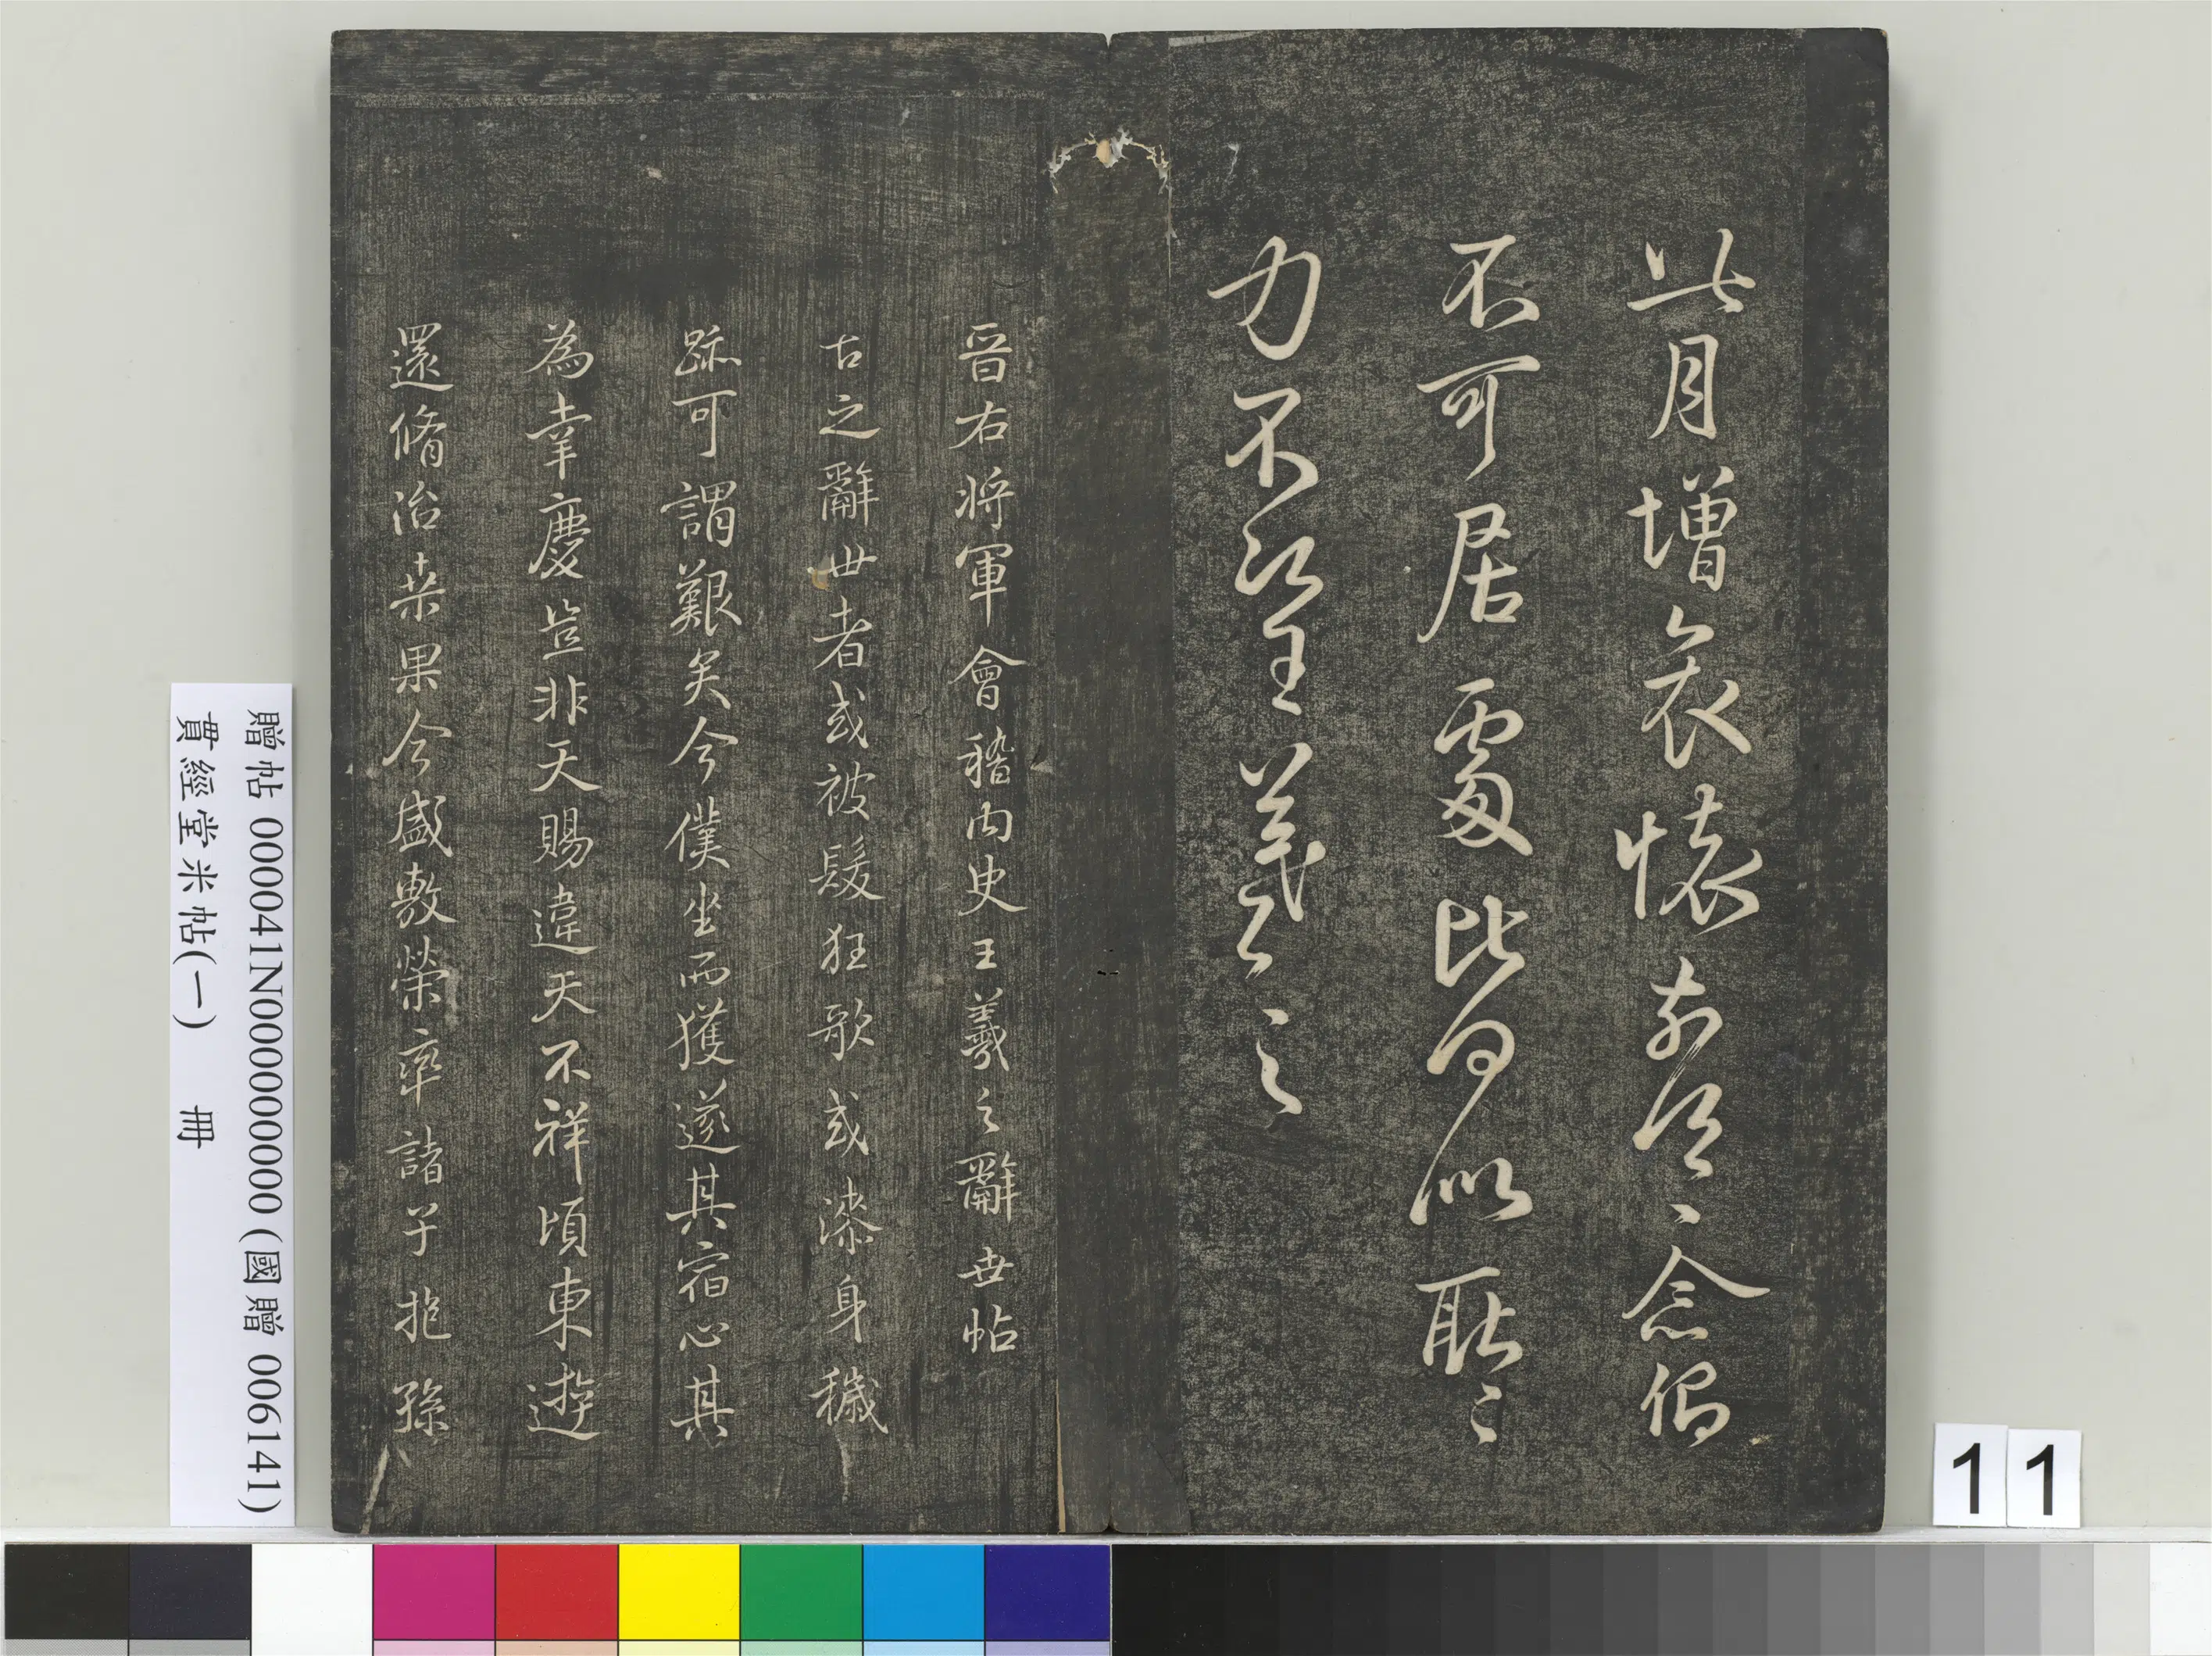 此月增哀懷前佳〻念傷
不可居處比何似耿〻
力不次王羲之〻
晉右將軍會稽內史王羲之辭世帖
古之辭世者或被髮狂歌或漆身穢
跡可謂艱矣今僕坐而獲遂其宿心其
為幸慶豈非天賜違天不祥頃東遊
還脩治桒果今盛敷榮率諸子抱孫
贈帖 000041N000000000 (國贈 006141)
貫經堂米帖(一) 冊
11